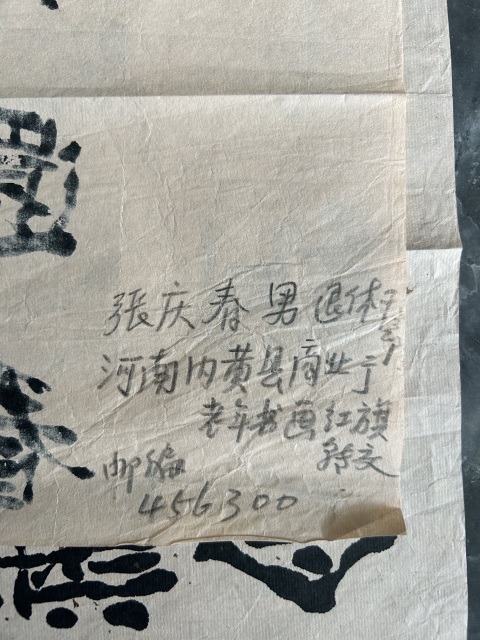 張庆春 男 退休
河南内黄县商业
老年书画红旗
转交
邮编
456300